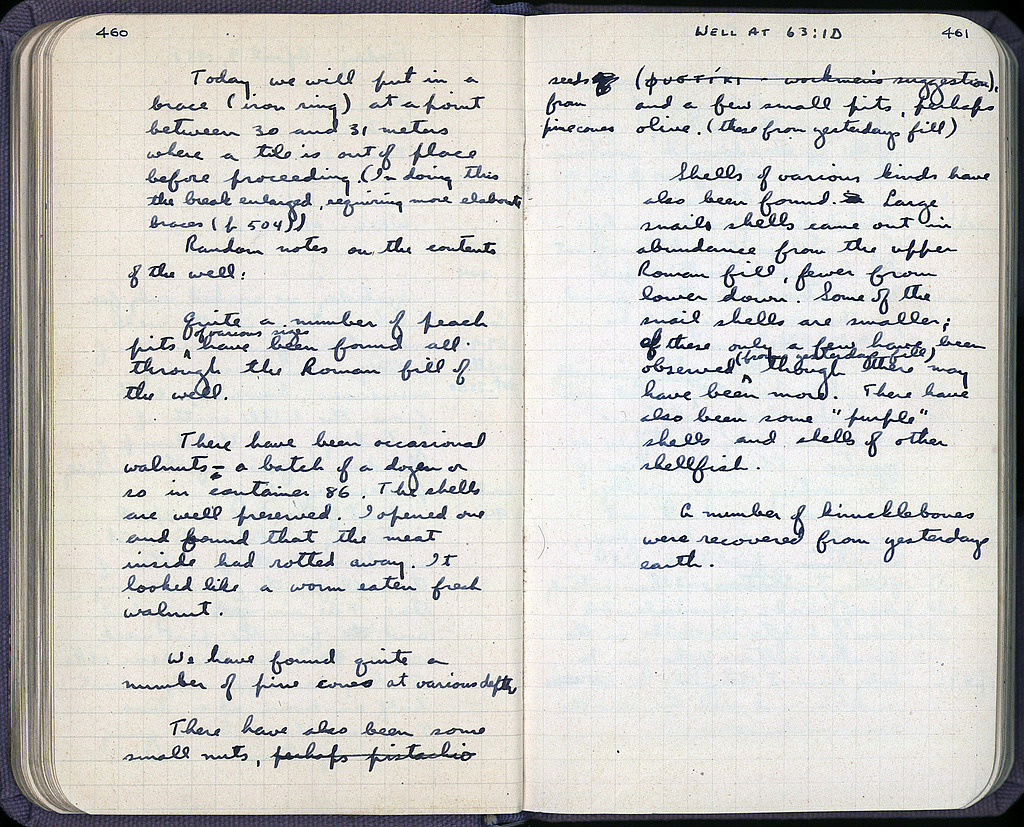 460
Today we will put in a
brace (iron ring) at a point
between 30 and 31 meters
where a tile is out of place
before proceeding. (In doing this
the break enlarged, requiring more elaborate
braces (p 504))
Random notes on the contents
of the well:
Quite a number of peach
of various sizes
pits ^ have been found all
through the Roman fill of
the well.
There have been occasional
walnuts – a batch of a dozen or
so in container 86. The shells
are well preserved. I opened one
and found that the meat
inside had rotted away. It
looked like a worm eaten fresh
walnut.
We have found quite a
number of pine cones at various depths
There have also been some
small nuts, perhaps pistachio
WELL AT 63:1D
461
seeds
from
pinecones
- workmen's suggestion),
and a few small pits, perhaps
olive. (these from yesterdays fill)
Shells of various kinds have
also been found. Large
snails shells came out in
abundance from the upper
Roman fill, fewer from
lower down. Some of the
snail shells are smaller;
of these only a few have been
(from yesterdays fill)
observed ^ though there may
have been more. There have
also been some "purple"
shells and shells of other
shellfish.
A number of knucklebones
were recovered from yesterdays
earth.